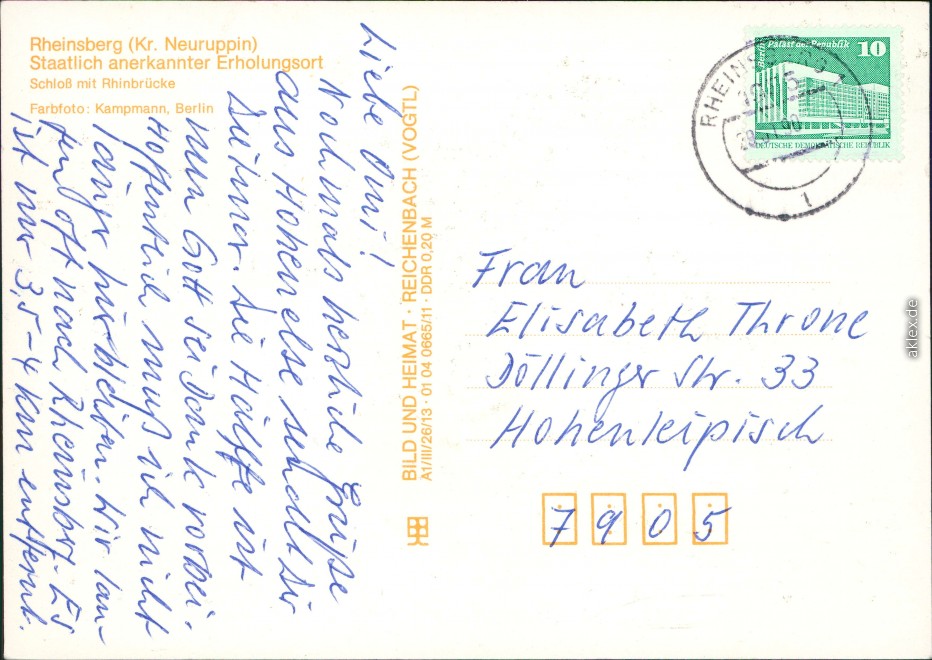 Rheinsberg (Kr. Neuruppin)
Staatlich anerkannter Erholungsort
Schloß mit Rhinbrücke
Farbfoto: Kampmann, Berlin
Liebe Omi!
Nochmals herzliche Grüße
aus Hohenelse sendet Dir
Die Hälfte ist
nun Gott sei Dank vorbei.
Hoffentlich muß ich nicht
länger hierbleiben. Wir lau-
fen oft nach Rheinsberg. Es
ist nur 3,5-4 km entfernt.
BILD UND HEIMAT · REICHENBACH (VOGTL)
A1/III/26/13 · 01 04 0665/11 · DDR 0,20 M
Berlin Palast der Republik 10
DEUTSCHE DEMOKRATISCHE REPUBLIK
RHEINSBERG 1
Frau
Elisabeth Throne
Döllinger Str. 33
Hohenleipisch
7905
aklex.de